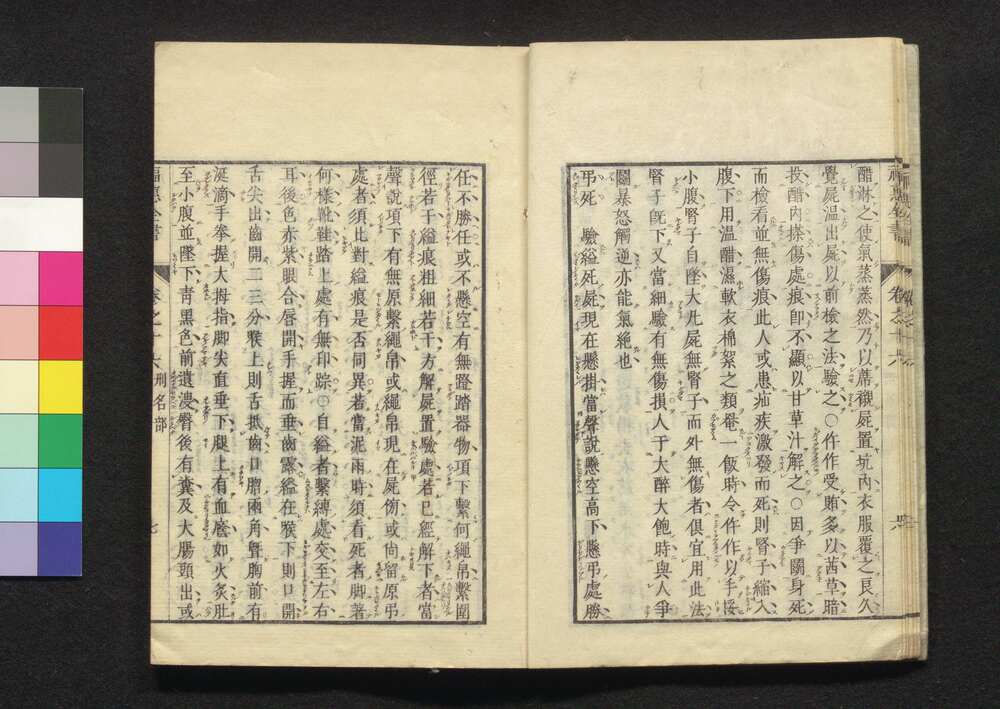 醋淋之使氣蒸蒸然乃以蓆襯屍置坑內衣服覆之良久
覺屍溫出屍以前檢之法驗之○仵作受賄多以茜草暗
投醋內搽傷處痕卽不顯以甘草汁解之○因爭鬪身死
而檢看並無傷痕此人或患疝疾激發而死則腎子縮入
腹下用溫醋濕軟衣棉絮之類罨一飯時令仵作以手按
小腹腎子自墜大凡屍無腎子而外無傷者俱宜用此法
腎子旣下又當細驗有無傷損人于大醉大飽時與人爭
鬪暴怒觸逆亦能氣絶也
弔死 驗縊死屍現在懸掛當聲說懸空高下懸弔處勝
任不勝任或不懸空有無蹬踏器物項下繫何繩帛繫圍
徑若干縊痕粗細若干方解屍置驗處若已經解下者當
聲說項下有無原繫繩帛或繩帛現在屍傍或尙留原弔
處者須比對縊痕是否同異若當泥雨時須看死者脚著
何樣靴鞋踏上處有無印踪○自縊者繫縛處交至左右
耳後色赤紫眼合唇開手握而垂齒露縊在喉下則口開
舌尖出齒開二三分喉上則舌抵齒口脗兩角曁胸前有
涎滴手拳握大拇指脚尖直垂下腿上有血癊如火炙肚
至小腹並墜下靑黑色前遺溲臀後有糞及大腸頭出或
福惠全書 卷之十六 刑名部 七